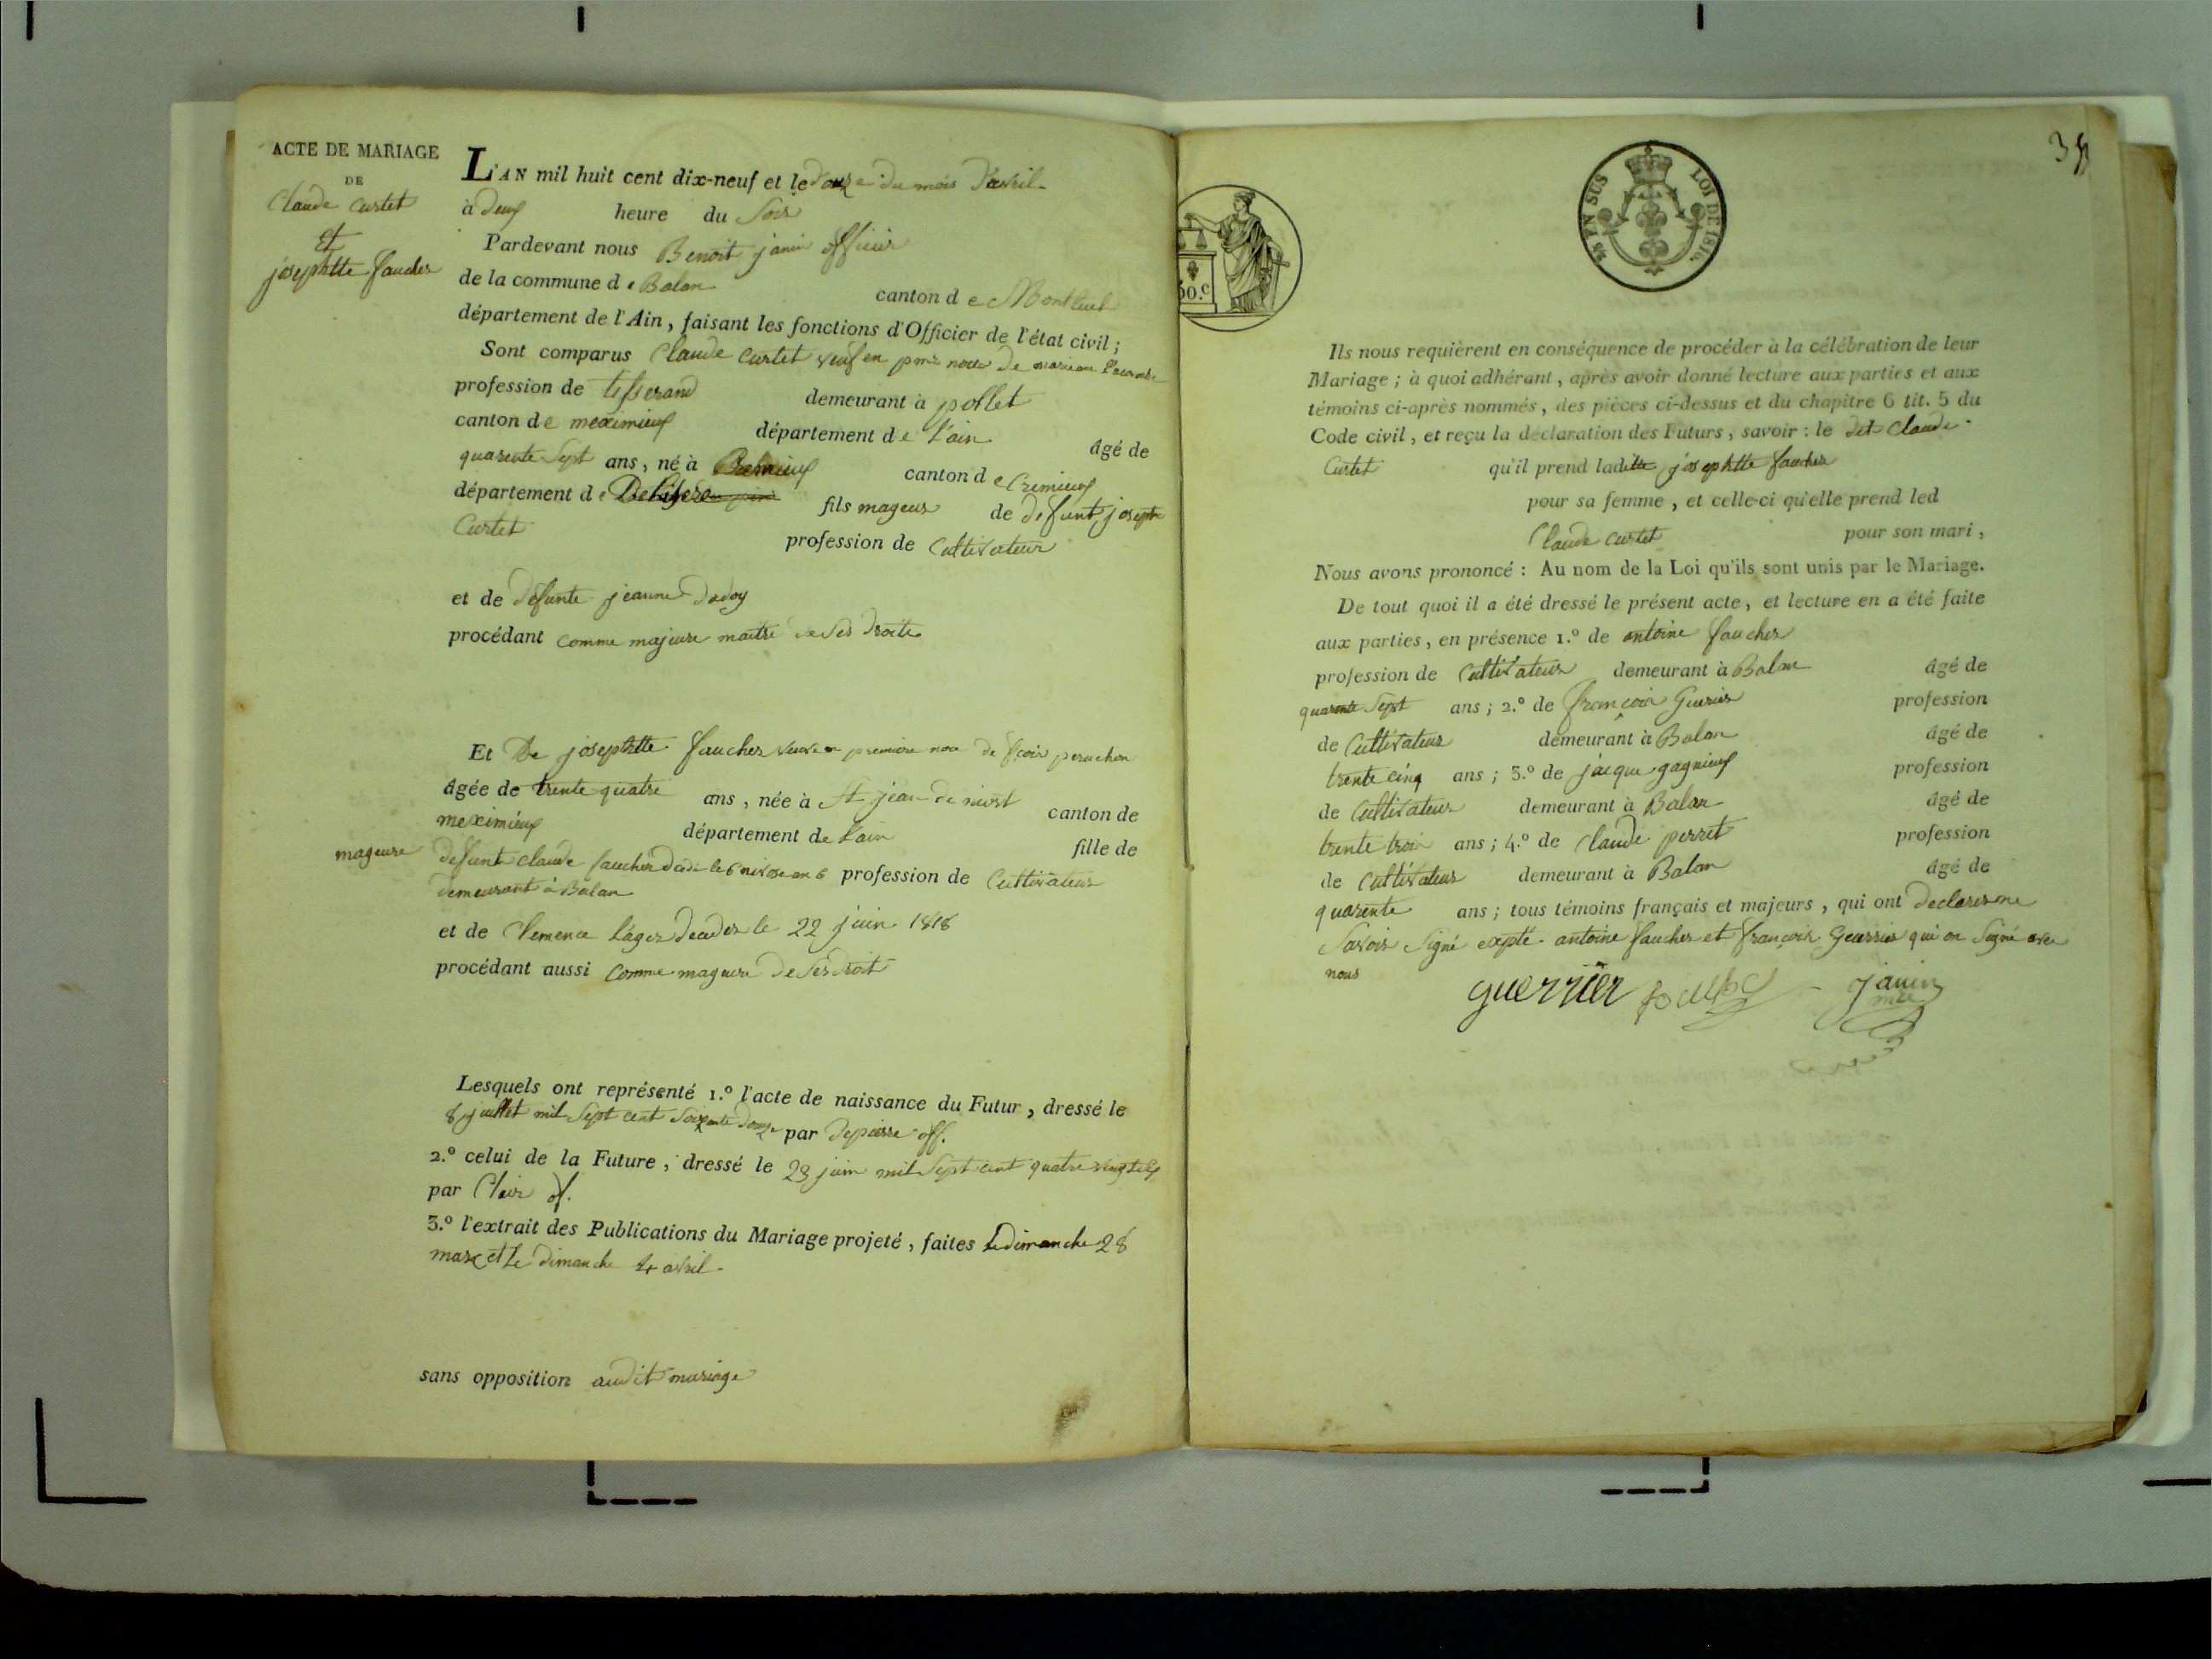 ACTE DE MARIAGE
DE
Claude Curtet
Et
josephtte faucher
L'AN mil huit cent dix-neuf et le douze du mois d'avril
à deux heure du Soir
Pardevant nous Benoit janin officier
de la commune de Balan canton de Montluel
département de l'Ain, faisant les fonctions d'Officier de l'état civil;
Sont comparus Claude Curtet veuf en pmre noce de mariane
profession de tisserand demeurant à pollet
canton de meximieux département de l'ain âgé de
quarente Sept ans, né à canton de Cremieux
département de De lisere fils mageur de defunt joseph
Curtet profession de Cultivateur
et de defunte jeanne dodoy
procédant comme majeure maitre de Ses droits
Et De josephtte faucher veuve en premiere noce de fcois peruchon
âgée de trente quatre ans, née à St jean de niost canton de
meximieux département de l'ain fille de
mageure defunt claude faucher décédé le 6 nivose an 6 profession de Cultivateur
demeurant à Balan
et de Clemence Léger decedez le 22 juin 1818
procédant aussi comme mageure de Ses droit
Lesquels ont représenté 1.º l'acte de naissance du Futur, dressé le
8 juillet mil Sept cent Soixante douze par depierre off.
2.º celui de la Future, dressé le 23 juin mil Sept cent quatre vingt
par Clair of.
3.º l'extrait des Publications du Mariage projeté, faites le dimanche 28
mars et le dimanche 4 avril
sans opposition audit mariage
EN SUS
LOI DE 1816.
50.c
Ils nous requièrent en conséquence de procéder à la célébration de leur
Mariage; à quoi adhérant, après avoir donné lecture aux parties et aux
témoins ci-après nommés, des pièces ci-dessus et du chapitre 6 tit. 5 du
Code civil, et reçu la déclaration des Futurs, savoir: le dit Claude
Curtet qu'il prend laditte josephtte faucher
pour sa femme, et celle-ci qu'elle prend led
Claude curtet pour son mari,
Nous avons prononcé: Au nom de la Loi qu'ils sont unis par le Mariage.
De tout quoi il a été dressé le présent acte, et lecture en a été faite
aux parties, en présence 1.º de antoine faucher
profession de Cultivateur demeurant à Balan âgé de
quarente Sept ans; 2.º de françois Guerier profession
de Cultivateur demeurant à Balan âgé de
trente cinq ans; 3.º de jacque gagnieux profession
de Cultivateur demeurant à Balan âgé de
trente trois ans; 4.º de Claude perret profession
de Cultivateur demeurant à Balan âgé de
quarente ans; tous témoins français et majeurs, qui ont declarer ne
Savoir Signé expté antoine faucher et françois Guerrier qui on Signé avec
nous
guerrier janin